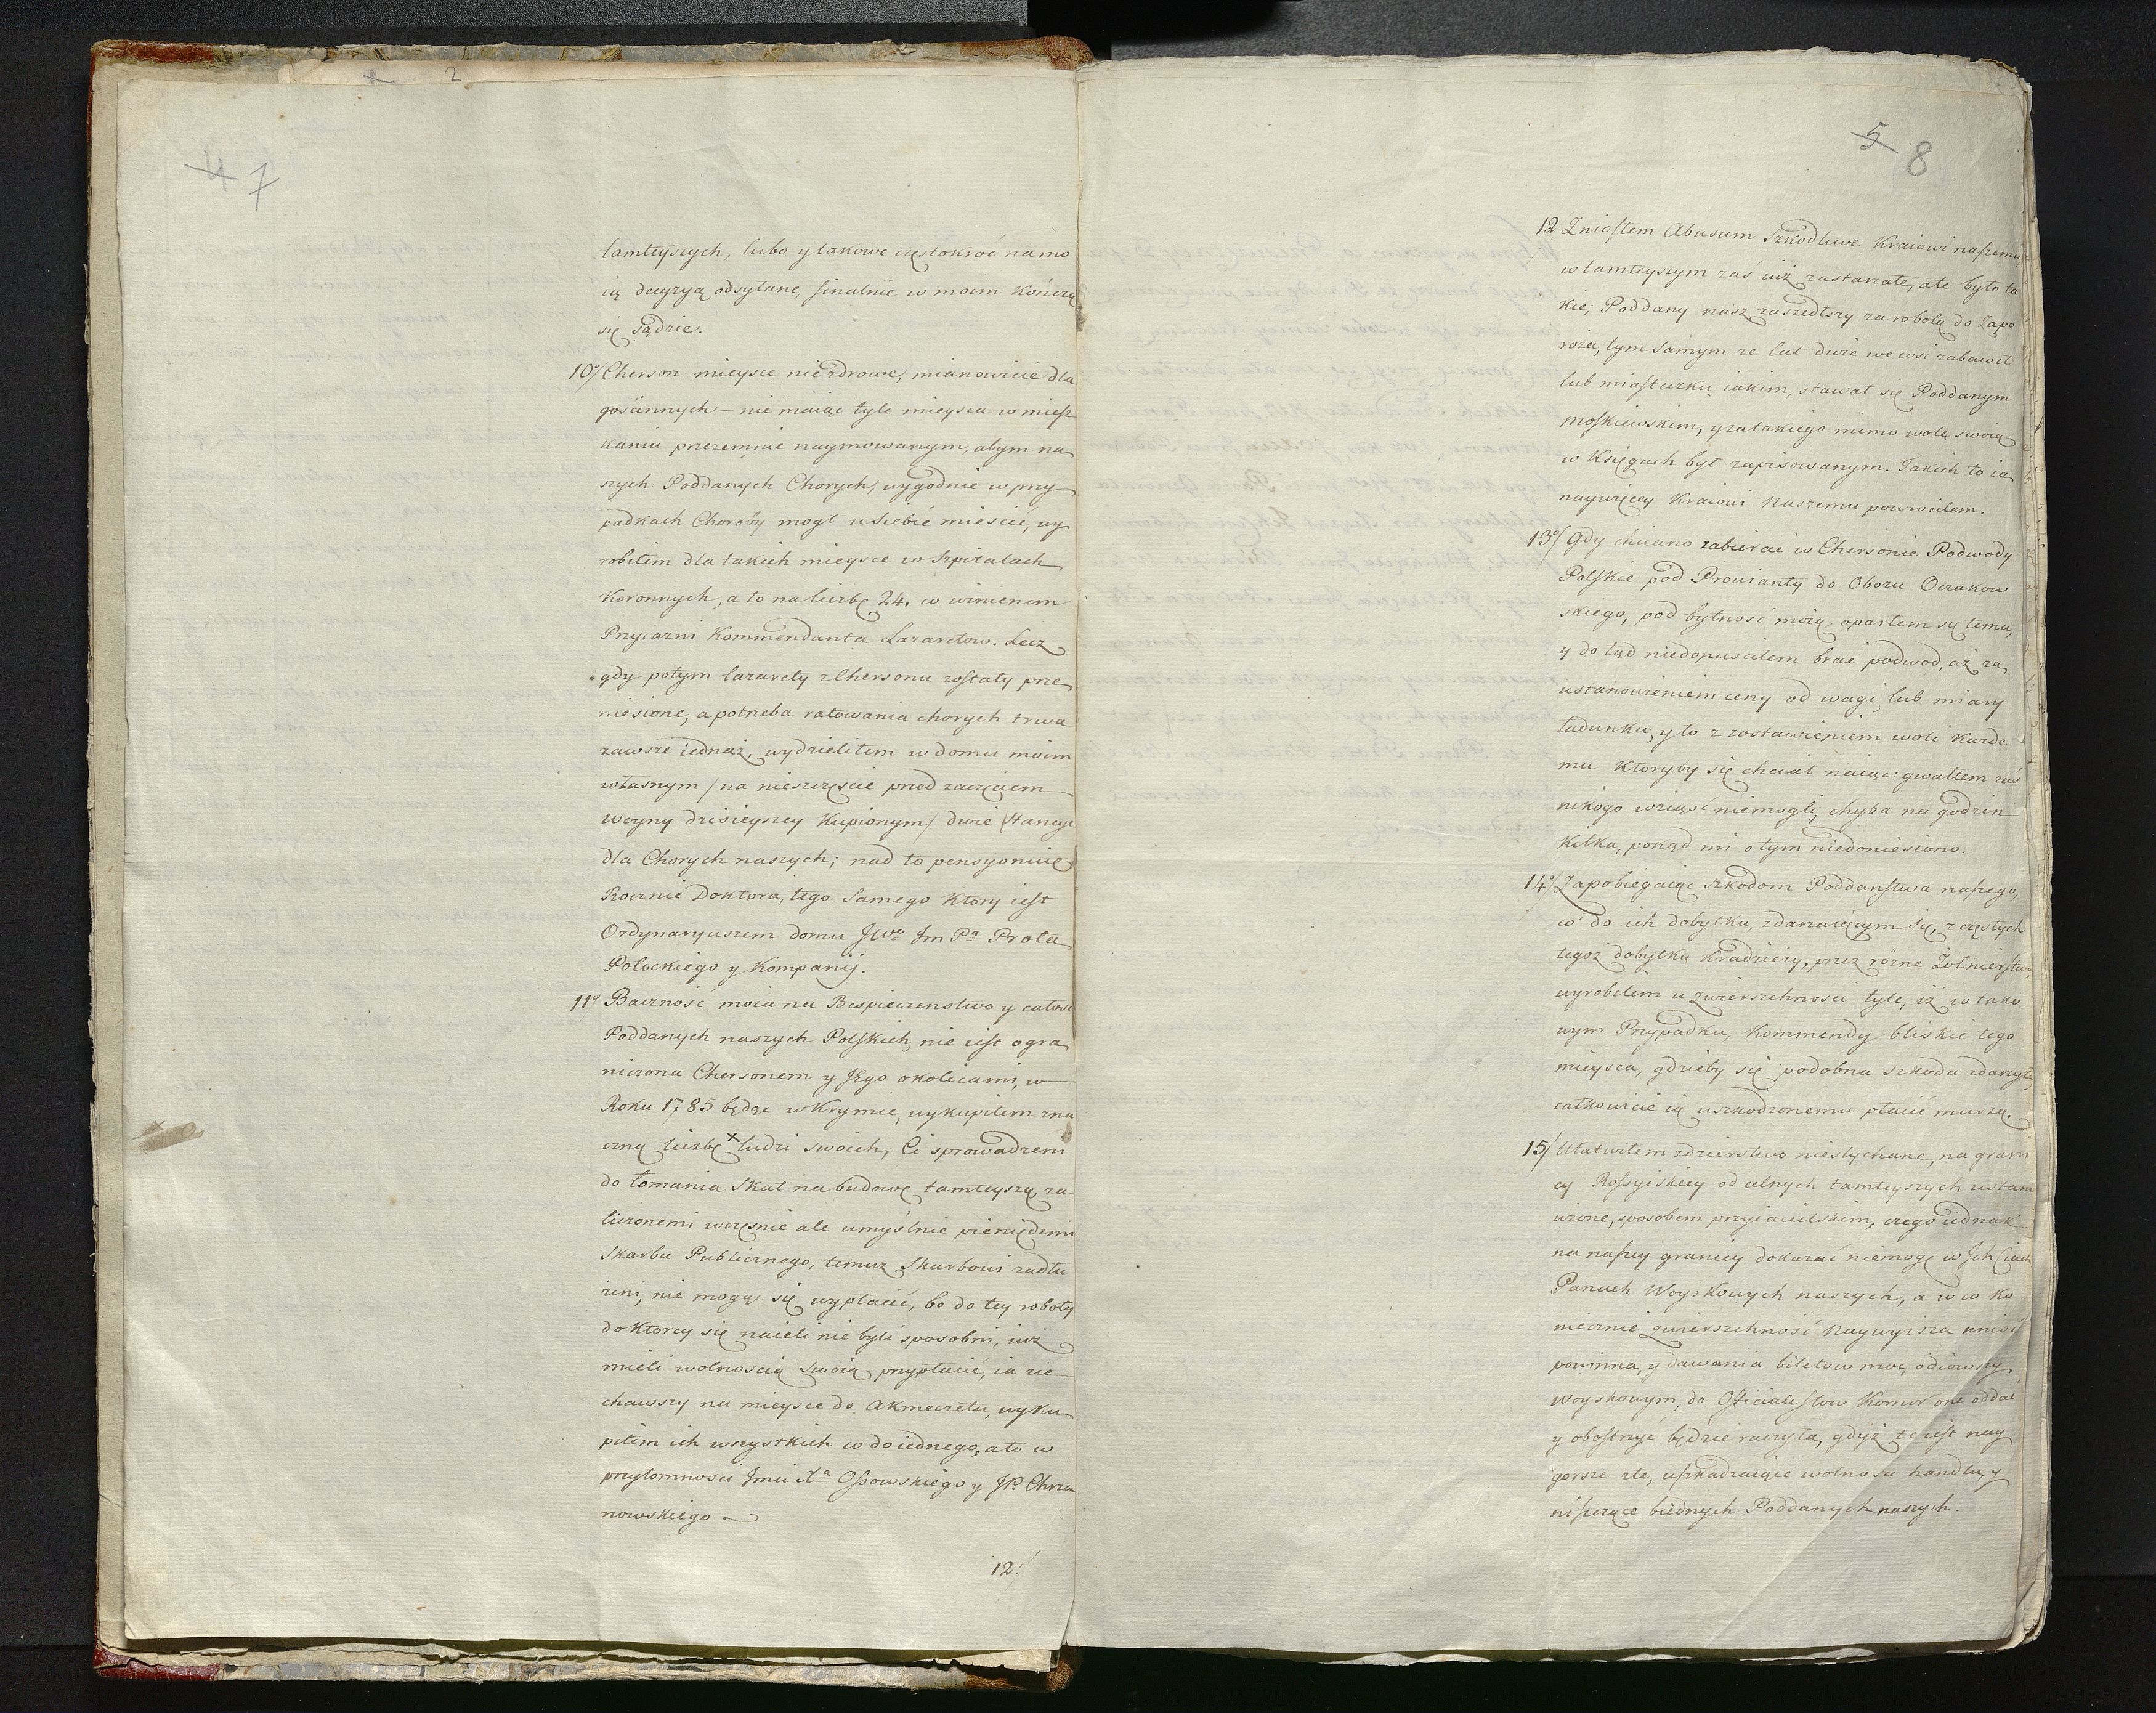 2
4 7
tamteyszych, lubo y takowe częstokroć na mo
ią decyzyą odsyłane, finalnie w moim kończą
się sądzie.
10°/ Cherson mieysce niezdrowe, mianowicie dla
gościnnych – nie maiąc tyle mieysca w miesz
kaniu przezemnie naymowanym, abym na
szych Poddanych Chorych, wygodnie w przy
padkach Choroby mogł u siebie mieścić, wy
robiłem dla takich mieysce w Szpitalach
Koronnych, a to na liczbę 24. co winienem
Przyiazni Kommendanta Lazaretow. Lecz
gdy potym lazarety z Chersonu zostały prze
niesione, a potrzeba ratowania chorych trwa
zawsze iednaż, wydzieliłem w domu moim
własnym / na nieszczęscie przed zaczęciem
woyny dzisieyszey Kupionym / dwie Stancye
dla Chorych naszych; nad to pensyonuię
Rocznie Doktora, tego samego Ktory iest
Ordynaryuszem domu JWo Jm Pa Prota
Potockiego y Kompanij.
11° Baczność moia na Bespieczenstwo y całość
Poddanych naszych Polskich, nie iest ogra
niczona Chersonem y Jego okolicami, w
Roku 1785 będąc w Krymie, wykupiłem zna
czną liczbę x ludzi swoich, Ci sprowadzeni
do łomania Skał na budowę tamteyszą, za
liczonemi wczęsnie ale umyślnie pieniędzmi
Skarbu Publicznego, temuz Skarbowi zadłu
żeni, nie mogąc się wypłacić, bo do tey roboty
do Ktorey się naieli nie byli sposobni, iuż
mieli wolnoscią swoią przypłacić, ia zie
chawszy na mieysce do Akmeczetu, wyku
piłem ich wszystkich co do iednego, a to w
przytomnosci Jmci Xa Ossowskiego y JP. Chrza
nowskiego
12:/
5 8
12 Zniosłem Abusum szkodliwe Kraiowi naszemu
w tamteyszym zaś iuż zastarzałe, ale było ta
kie; Poddany nasz zaszedłszy za robotą do Zapo
roża, tym samym że lat dwie we wsi zabawił
lub miasteczku iakim, stawał się Poddanym
Moskiewskim, y za takiego mimo wolą swoią
w Księgach był zapisowanym. Takich to ia
naywięcey Kraiowi Naszemu powrociłem.
13°/ Gdy chciano zabierać w Chersonie Podwody
Polskie pod Prowianty do Obozu Oczakow
skiego, pod bytność moią, oparłem się temu,
y do tąd niedopusciłem brać podwod, aż za
ustanowieniem ceny od wagi, lub miary
ładunku, y to z zostawieniem woli Każde
mu Ktoryby się chciał naiąc: gwałtem zaś
nikogo wziąść niemogli, chyba na godzin
kilka, poniąd mi o tym niedoniesiono.
14°/ Zapobiegaiąc szkodom Poddanstwa naszego,
co do ich dobytku, zdarzaiącym się, z częstych
tegoż dobytku Kradzieży, przez rożne Żołnierstwo,
wyrobiłem u zwierzchnosci tyle, iż w tako
wym Przypadku, Kommendy bliskie tego
mieysca, gdzieby się podobna szkoda zdarzyła,
całkowicie ią uszkodzonemu płacić muszą.
15/ Ułatwiłem zdzierstwo niesłychane, na grani
cy Rossyiskiey od celnych tamteyszych ustano
wione, sposobem przyiacielskim, czego iednak
na naszey granicy dokazać niemogę w Jch Ciach
Panach Woyskowych naszych, a w co ko
niecznie zwierzchność Naywyższa wniść
powinna, y dawania biletow moc, odiowszy
woyskowym, do Oficialistow Komor one oddać
y obostrzyć będzie raczyła, gdyż to iest nay
gorsze złe, uszkadzaiące wolność handlu, y
niszczące biednych Poddanych naszych.